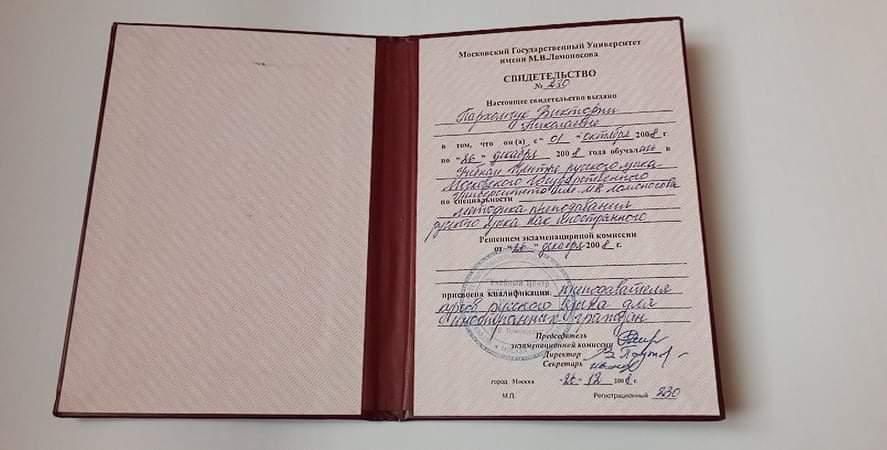 Московский Государственный Университет
имени М.В.Ломоносова
СВИДЕТЕЛЬСТВО
№ 230
Настоящее свидетельство выдано
Пархомчук Виктории
Николаевне
в том, что он(а) с "01" октября 2008 г.
по "26" декабря 2008 года обучалась в
Учебном Центре русского языка
Московского Государственного
Университета им. МВ Ломоносова
по специальности
методика преподавания
русского языка как иностранного
Решением экзаменационной комиссии
от "26" декабря 2008 г.
Учебный Центр
присвоена квалификация преподавателя
курсов русского языка для
иностранных граждан
Председатель
экзаменационной комиссии
Директор
Секретарь
город Москва "26" 12 2008 г.
М.П. Регистрационный 230